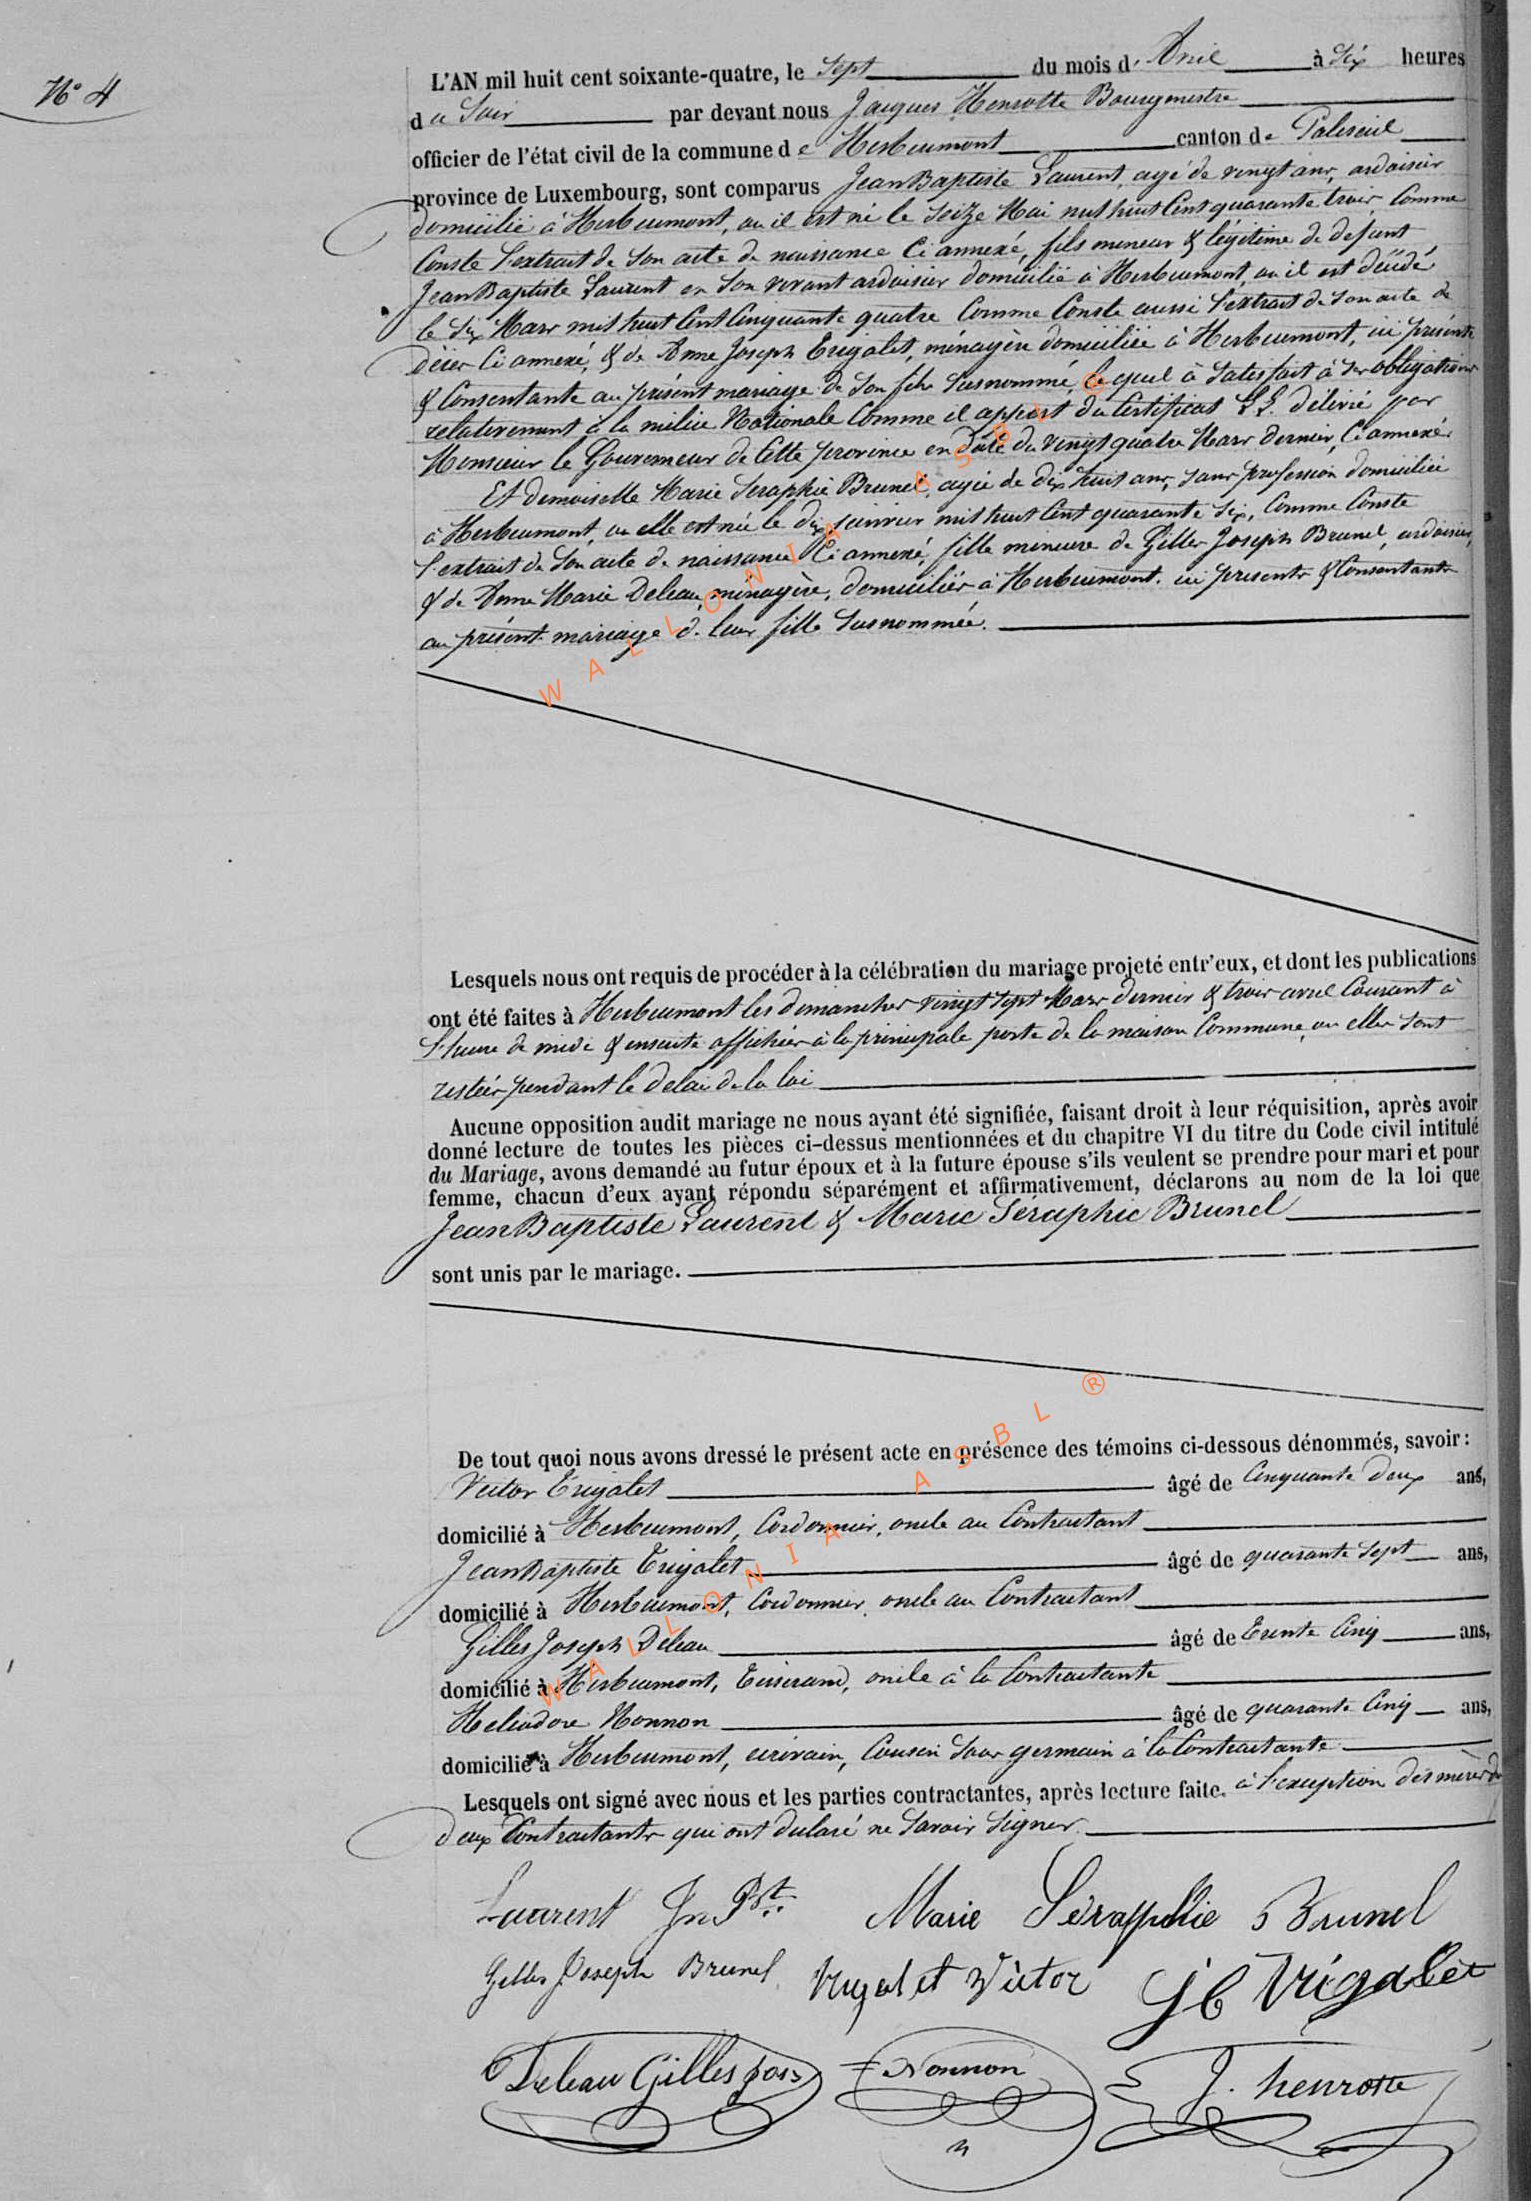 N° 4
L'AN mil huit cent soixante-quatre, le Sept du mois d' Avril à Six heures
du Soir par devant nous Jacques Henrotte Bourgmestre
officier de l'état civil de la commune de Herbeumont canton de Paliseul
province de Luxembourg, sont comparus Jean Baptiste Laurent, agé de vingt ans, ardoisier
domicilié à Herbeumont, où il est né le Seize Mai mil huit Cent quarante trois, Comme
Conste l'extrait de Son acte de naissance Ci annexé, fils mineur & légitime de defunt
Jean Baptiste Laurent en Son vivant ardoisier domicilié à Herbeumont, où il est décédé
le dix Mars mil huit Cent Cinquante quatre Comme Conste aussi l'extrait de Son acte de
décès Ci annexé, & de Anne Joseph Trigalet, ménagère domiciliée à Herbeumont, ici présente
& Consentante au présent mariage de Son fils Susnommé, lequel à Satisfait à Ses obligations
relativement à la milice Nationale Comme il appert du Certificat LL. délivré par
Monsieur le Gouverneur de Cette province en date du vingt quatre Mars dernier, Ci annexé.
Et demoiselle Marie Seraphie Brunel, agée de dix huit ans, Sans profession domiciliée
à Herbeumont, où elle est née le dix janvier mil huit Cent quarante Six, Comme Conste
l'extrait de Son acte de naissance Ci annexé, fille mineure de Gilles Joseph Brunel, ardoisier,
& de Anne Marie Deleau, ménagère, domiciliés à Herbeumont, ici presents & Consentants
au présent mariage de leur fille Susnommée.
WALLONIA ASBL ®
Lesquels nous ont requis de procéder à la célébration du mariage projeté entr'eux, et dont les publications
ont été faites à Herbeumont les dimanches vingt Sept Mars dernier & trois avril Courant à
l'heure de midi & ensuite affichées à la principale porte de la maison Commune, où elles Sont
restées pendant le délai de la loi
Aucune opposition audit mariage ne nous ayant été signifiée, faisant droit à leur réquisition, après avoir
donné lecture de toutes les pièces ci-dessus mentionnées et du chapitre VI du titre du Code civil intitulé
du Mariage, avons demandé au futur époux et à la future épouse s'ils veulent se prendre pour mari et pour
femme, chacun d'eux ayant répondu séparément et affirmativement, déclarons au nom de la loi que
Jean Baptiste Laurent & Marie Séraphie Brunel
sont unis par le mariage.
De tout quoi nous avons dressé le présent acte en présence des témoins ci-dessous dénommés, savoir :
Victor Trigalet âgé de Cinquante deux ans,
domicilié à Herbeumont, Cordonnier, oncle au Contractant
Jean Baptiste Trigalet âgé de quarante Sept ans,
domicilié à Herbeumont, Cordonnier, oncle au Contractant
Gilles Joseph Deleau âgé de Trente Cinq ans,
domicilié à Herbeumont, Tisserand, oncle à la Contractante
Heliodore Nonnon âgé de quarante Cinq ans,
domicilié à Herbeumont, écrivain, Cousin Sous germain à la Contractante
Lesquels ont signé avec nous et les parties contractantes, après lecture faite. à l'exception des mères des
deux Contractants qui ont déclaré ne Savoir Signer.
Laurent Jn Bt. Marie Séraphie Brunel
Gilles Joseph Brunel Trigalet Victor J B Trigalet
Deleau Gilles jos Nonnon J. henrotte
WALLONIA ASBL ®